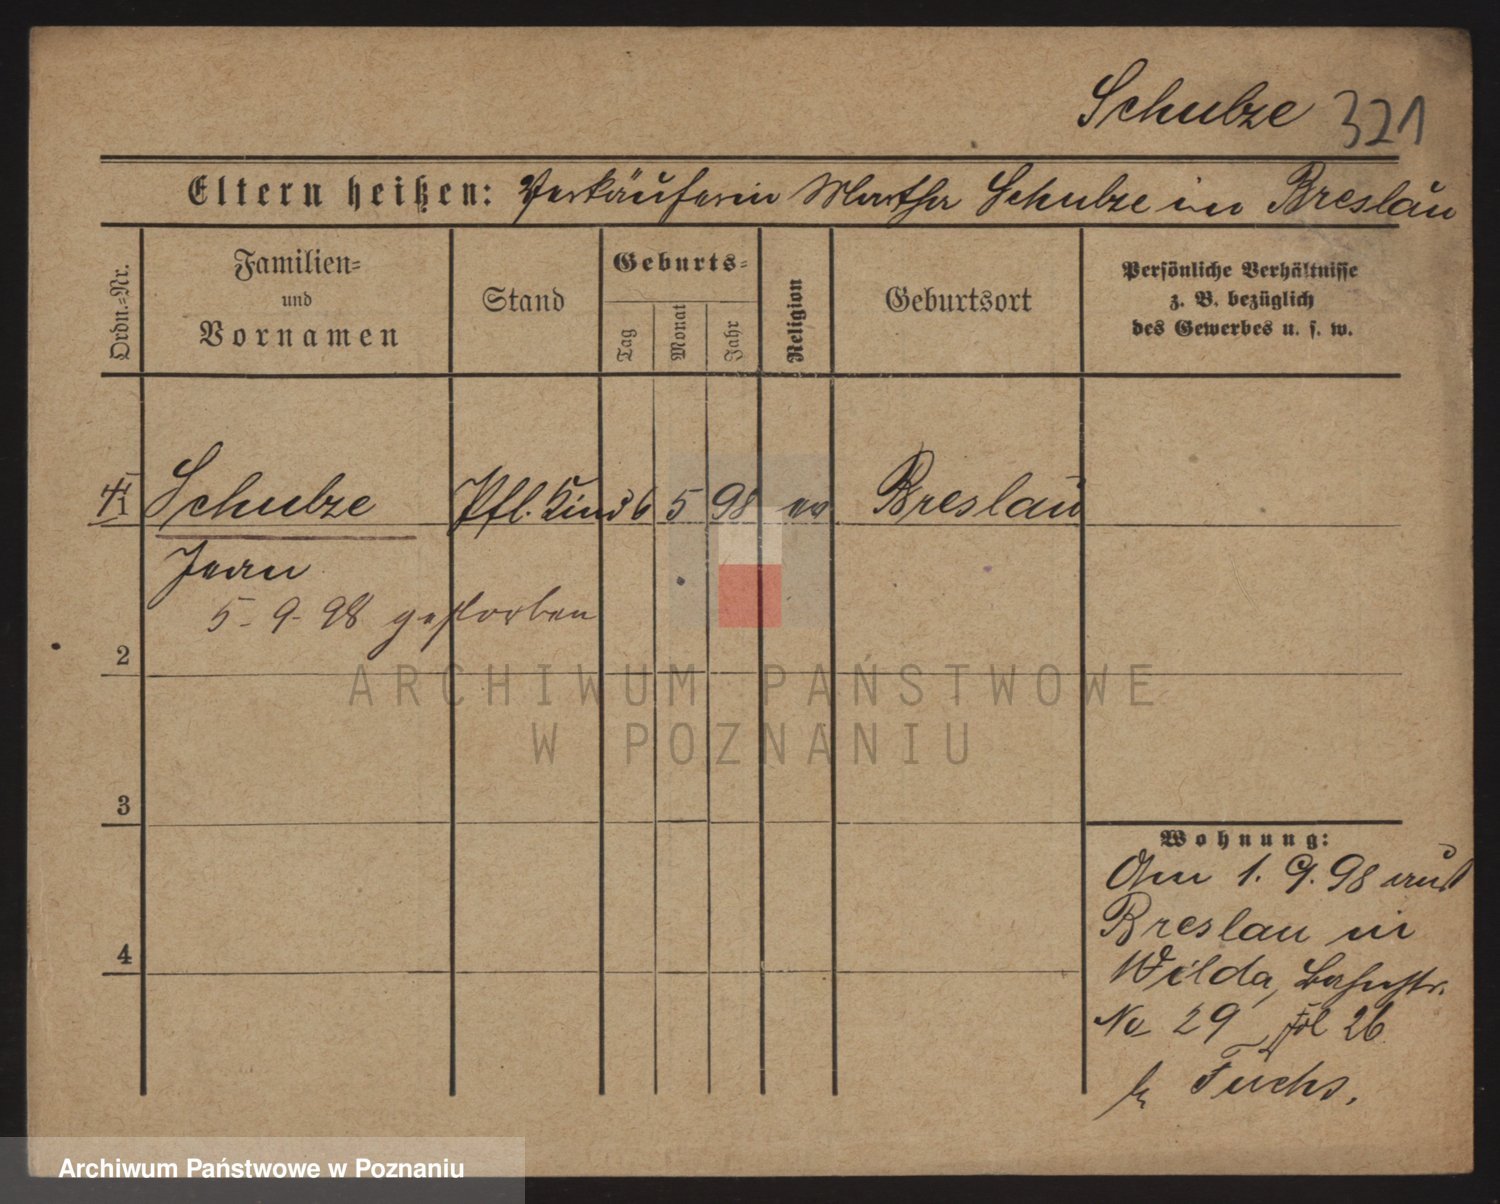 Schulze 321
Eltern heißen: Verkäuferin Martha Schulze in Breslau
Ordn.-Nr.
Familien-
und
Vornamen
Stand
Geburts-
Tag
Monat
Jahr
Religion
Geburtsort
Persönliche Verhältnisse
z. B. bezüglich
des Gewerbes u. s. w.
1 Schulze Pfl. Kind 6 5 98 ev Breslau
Jean
5-9-98 gestorben
2
ARCHIWUM PAŃSTWOWE
W POZNANIU
3
4
Wohnung:
Am 1. 9. 98 aus
Breslau in
Wilda, Bahnstr.
No 29 fol 26
Fuchs.
Archiwum Państwowe w Poznaniu